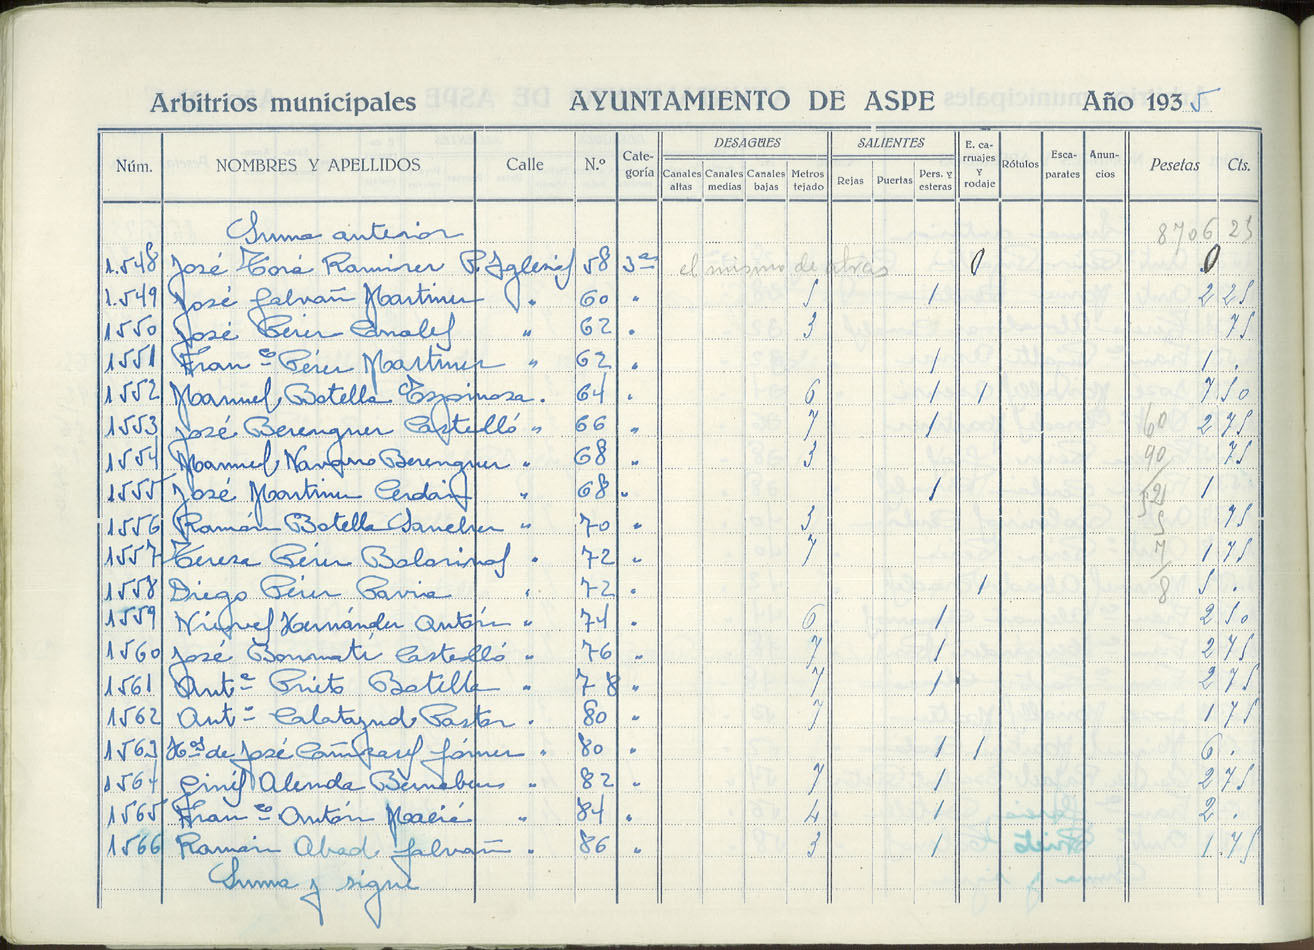 Arbitrios municipales AYUNTAMIENTO DE ASPE Año 1935
Núm. NOMBRES Y APELLIDOS Calle N.º Cate-goría DESAGÜES Canales altas Canales medias Canales bajas Metros tejado SALIENTES Rejas Puertas Pers. y esteras E. ca-rruajes y rodaje Rótulos Esca-parates Anun-cios Pesetas Cts.
Suma anterior 8706 25
1.548 José Torá Ramirez P. Iglesias 58 3ª el mismo de atras 0 0
1.549 José Galvañ Martinez " 60 " 5 1 2 25
1550 José Pérez Canals " 62 " 3 75
1551 Franco Pérez Martinez " 62 " 1 1 .
1552 Manuel Botella Espinosa . 64 " 6 1 1 7 50
1553 José Berenguer Castelló " 66 " 7 1 2 75
1554 Manuel Navarro Berenguer " 68 " 3 75
1555 José Martinez Cerdán " 68 " 1 1
1556 Ramón Botella Sanchez " 70 " 3 75
1557 Teresa Pérez " 72 " 7 1 75
1558 Diego Pérez Pavia " 72 " 1 5 .
1559 Miguel Hernández Antón " 74 " 6 1 2 50
1560 José Bonmatí Castelló " 76 " 7 1 2 75
1561 Antº Prieto Botella " 78 " 7 1 2 75
1562 Antº Calatayud Pastor " 80 " 7 1 75
1563 Hos de José Cañizares Gómez " 80 " 1 1 6 .
1564 Ginés Alenda Bernabeu " 82 " 7 1 2 75
1565 Franco Antón Maciá " 84 " 4 1 2 .
1566 Ramón Abad Galvañ " 86 " 3 1 1.75
Suma y sigue